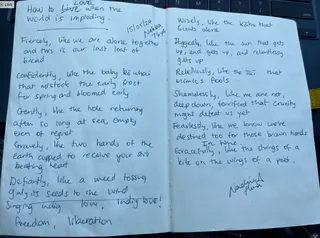 Love
How to  when the
world is imploding.
15/05/20
Fiercely, like we are alone together
and this is our last loaf of
bread
Confidently, like the baby  who
that mistook the early frost
for spring and bloomed early
Gently, like the  returning
after so long at sea, empty
even of regret
Gravely, like two hands of the
earth cupped to receive your own
beating heart
Defiantly, like a weed tossing
gaily its seeds to the wind
Singing indig love, indig love!
Freedom, liberation
Wisely, like the  that
hunts alone
Doggedly, like the sun that gets
up, and gets up, and relentlessly
gets up
Rebelliously, like the  that
 feels
Shamelessly, like we are not,
deep down, terrified that cruelty
might defeat us yet
Fearlessly, like we know we're
destined too for those brown hands
In time
Gracefully, like the strings of a
kite on the wings of a poet.